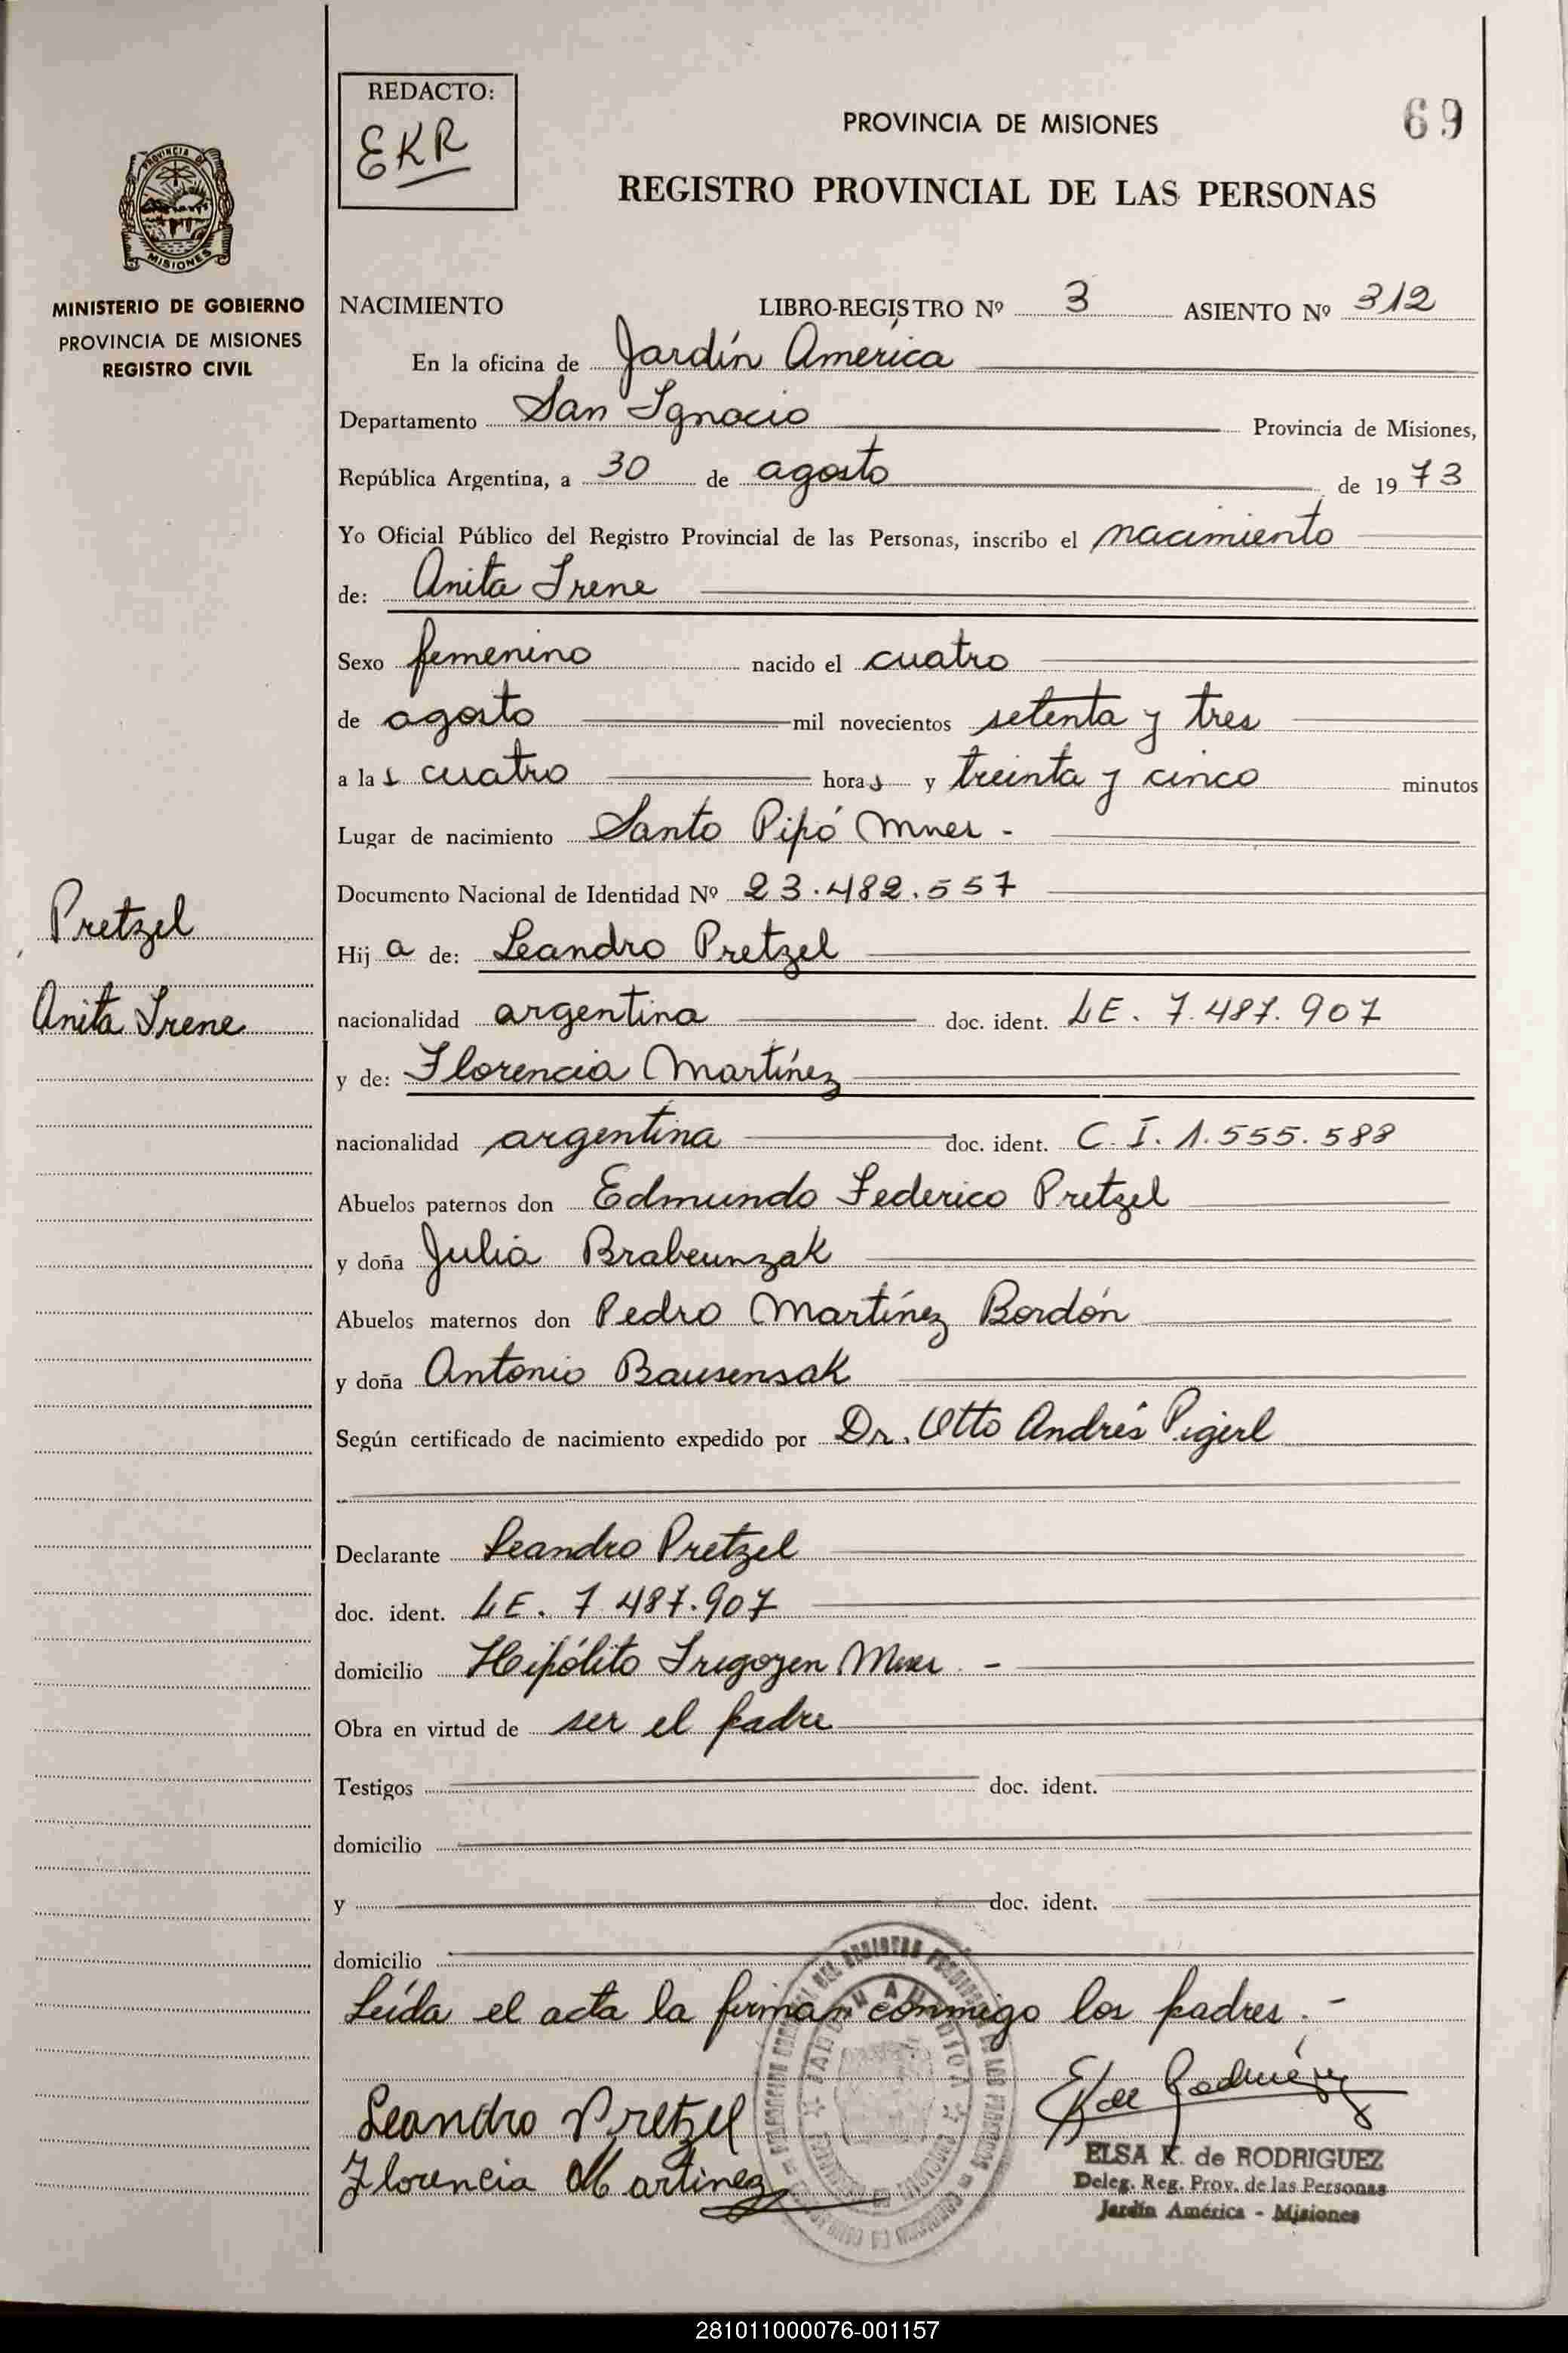 REDACTO:
EKR
PROVINCIA DE MISIONES
69
REGISTRO PROVINCIAL DE LAS PERSONAS
PROVINCIA DE
MISIONES
MINISTERIO DE GOBIERNO
PROVINCIA DE MISIONES
REGISTRO CIVIL
NACIMIENTO LIBRO-REGISTRO Nº 3 ASIENTO Nº 312
En la oficina de Jardín America
Departamento San Ignacio Provincia de Misiones,
República Argentina, a 30 de agosto de 1973
Yo Oficial Público del Registro Provincial de las Personas, inscribo el nacimiento
de: Anita Irene
Sexo femenino nacido el cuatro
de agosto mil novecientos setenta y tres
a las cuatro horas y treinta y cinco minutos
Lugar de nacimiento Santo Pipó Mnes -
Documento Nacional de Identidad Nº 23.482.557
Pretzel
Hija de: Leandro Pretzel
Anita Irene
nacionalidad argentina doc. ident. LE. 7.487.907
y de: Florencia Martínez
nacionalidad argentina doc. ident. C. I. 1.555.588
Abuelos paternos don Edmundo Federico Pretzel
y doña Julia Brabeunzak
Abuelos maternos don Pedro Martínez Bordón
y doña Antonio Bausensak
Según certificado de nacimiento expedido por Dr. Otto Andrés Pigerl
Declarante Leandro Pretzel
doc. ident. LE. 7.487.907
domicilio Hipólito Irigoyen Mnes. -
Obra en virtud de ser el padre
Testigos doc. ident.
domicilio
y doc. ident.
domicilio
Leída el acta la firman conmigo los padres. -
Leandro Pretzel
Florencia Martinez
ELSA K. de RODRIGUEZ
Deleg. Reg. Prov. de las Personas
Jardín América - Misiones
281011000076-001157